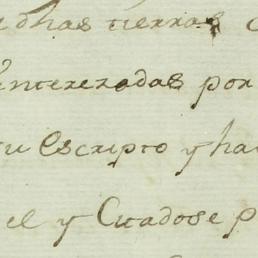 dhas tierras
Interezadas por
su Escripto y ha
el y Citadose p